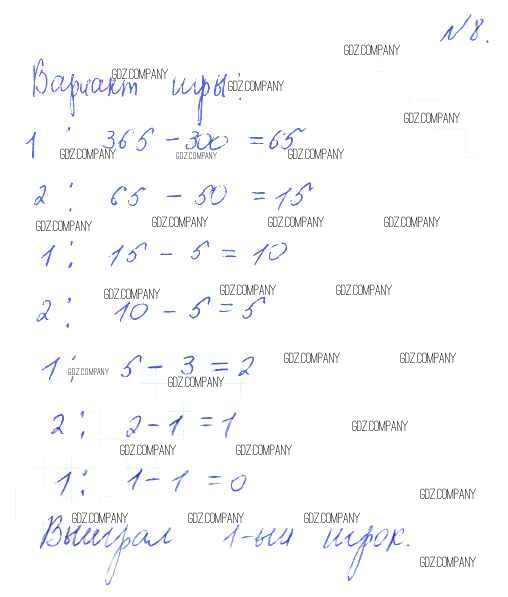 N 8.
GDZ.COMPANY
Вариант игры:
GDZ.COMPANY GDZ.COMPANY
GDZ.COMPANY
1 : 365 - 300 = 65
GDZ.COMPANY GDZ.COMPANY GDZ.COMPANY
2 : 65 - 50 = 15
GDZ.COMPANY GDZ.COMPANY GDZ.COMPANY GDZ.COMPANY
1 : 15 - 5 = 10
GDZ.COMPANY GDZ.COMPANY GDZ.COMPANY
2 : 10 - 5 = 5
1 : 5 - 3 = 2
GDZ.COMPANY GDZ.COMPANY GDZ.COMPANY GDZ.COMPANY
2 : 2 - 1 = 1
GDZ.COMPANY
GDZ.COMPANY GDZ.COMPANY
1 : 1 - 1 = 0
GDZ.COMPANY
GDZ.COMPANY GDZ.COMPANY GDZ.COMPANY
Выиграл 1-ый игрок.
GDZ.COMPANY